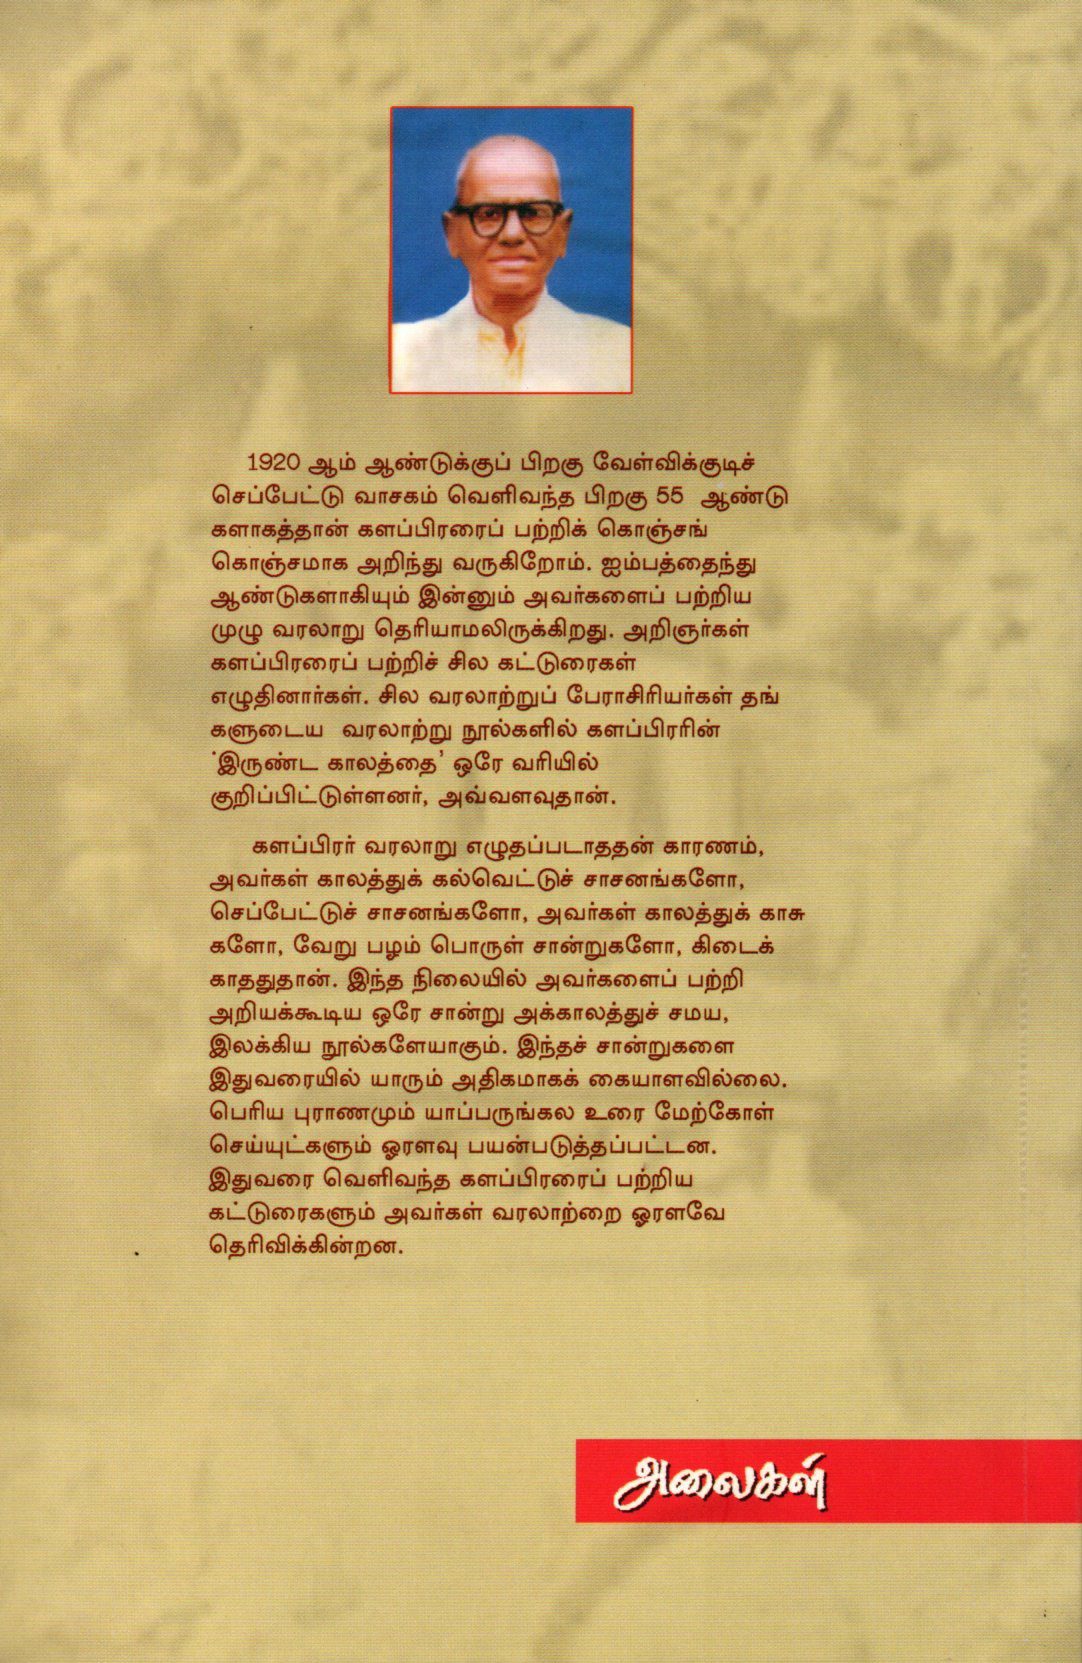 1920 ஆம் ஆண்டுக்குப் பிறகு வேள்விக்குடிச்
செப்பேட்டு வாசகம் வெளிவந்த பிறகு 55 ஆண்டு
களாகத்தான் களப்பிரரைப் பற்றிக் கொஞ்சங்
கொஞ்சமாக அறிந்து வருகிறோம். ஐம்பத்தைந்து
ஆண்டுகளாகியும் இன்னும் அவர்களைப் பற்றிய
முழு வரலாறு தெரியாமலிருக்கிறது. அறிஞர்கள்
களப்பிரரைப் பற்றிச் சில கட்டுரைகள்
எழுதினார்கள். சில வரலாற்றுப் பேராசிரியர்கள் தங்
களுடைய வரலாற்று நூல்களில் களப்பிரரின்
'இருண்ட காலத்தை' ஒரே வரியில்
குறிப்பிட்டுள்ளனர், அவ்வளவுதான்.
களப்பிரர் வரலாறு எழுதப்படாததன் காரணம்,
அவர்கள் காலத்துக் கல்வெட்டுச் சாசனங்களோ,
செப்பேட்டுச் சாசனங்களோ, அவர்கள் காலத்துக் காசு
களோ, வேறு பழம் பொருள் சான்றுகளோ, கிடைக்
காததுதான். இந்த நிலையில் அவர்களைப் பற்றி
அறியக்கூடிய ஒரே சான்று அக்காலத்துச் சமய,
இலக்கிய நூல்களேயாகும். இந்தச் சான்றுகளை
இதுவரையில் யாரும் அதிகமாகக் கையாளவில்லை.
பெரிய புராணமும் யாப்பருங்கல உரை மேற்கோள்
செய்யுட்களும் ஓரளவு பயன்படுத்தப்பட்டன.
இதுவரை வெளிவந்த களப்பிரரைப் பற்றிய
கட்டுரைகளும் அவர்கள் வரலாற்றை ஓரளவே
தெரிவிக்கின்றன.
அலைகள்